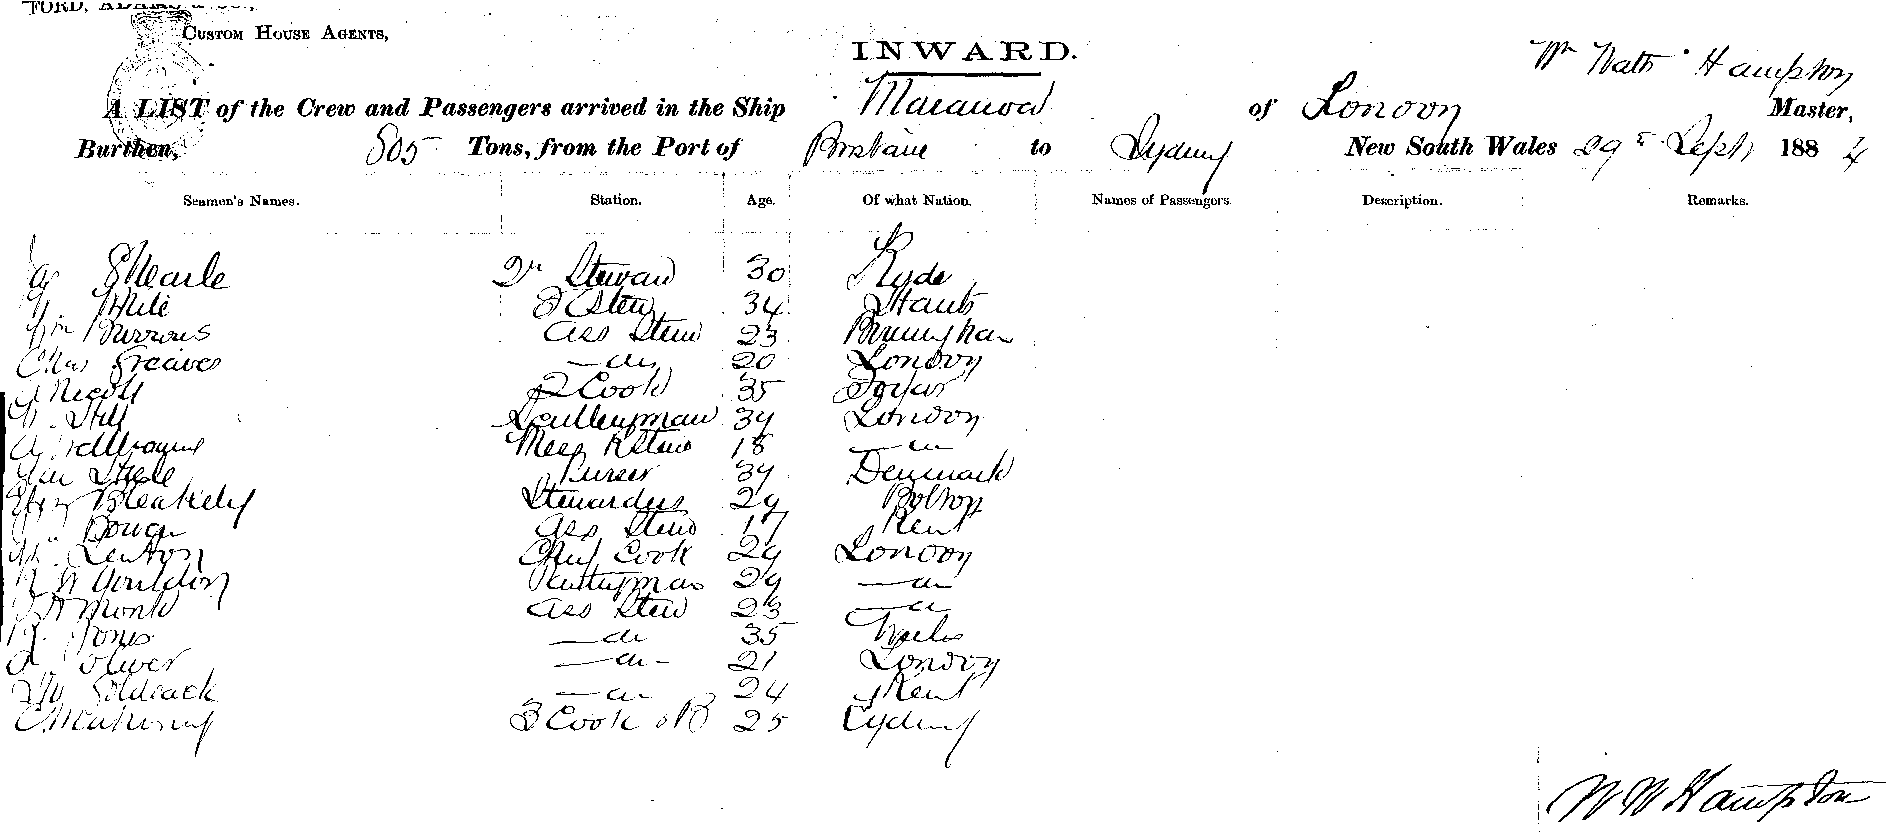 FORD, ADAMS & Co.,
CUSTOM HOUSE AGENTS,
INWARD.
Wm Natl Hampton
A LIST of the Crew and Passengers arrived in the Ship Maranoa of London Master,
Burthen, 505 Tons, from the Port of Brisbane to Sydney New South Wales 29th Sept 1884
Seamen's Names. Station. Age. Of what Nation. Names of Passengers. Description. Remarks.
Stewar 30 Ryde
34 Hants
Wm Burrows Ass Stew 23 Birmingham
Chas Greaves — do 20 London
J Nicoll 2 Cook 35
Still Sculleryman 34 London
Mess R Stew 18 — do
Steele Purser 34 Denmark
Bleakely Stewardess 29 Bolton
Ass Stew 17 Kent
Lenton Chief Cook 29 London
Pantryman 29 — do
Monk Ass Stew 23 — do
Jones — do 35 Wales
Oliver — do — 21 London
Goldsack — do 24 Kent
3 Cook & B 25 Sydney
W N Hampton